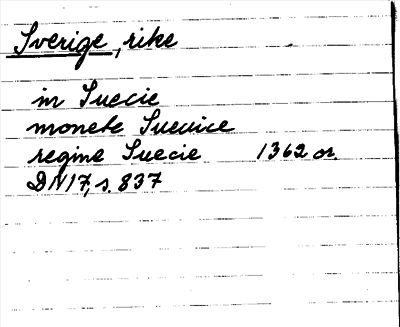 Sverige, rike
in Suecie
monete Suevice
regine Suecie 1362 or.
DN17, s. 837